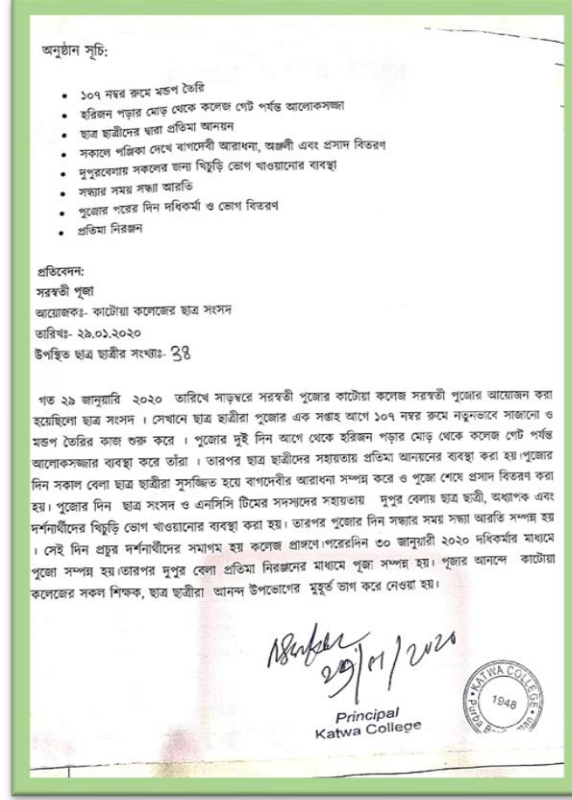 অনুষ্ঠান সূচি:
• ১০৭ নম্বর রুমে মন্ডপ তৈরি
• হরিজন পড়ার মোড় থেকে কলেজ গেট পর্যন্ত আলোকসজ্জা
• ছাত্র ছাত্রীদের দ্বারা প্রতিমা আনয়ন
• সকালে পঞ্জিকা দেখে বাগদেবী আরাধনা, অঞ্জলী এবং প্রসাদ বিতরণ
• দুপুরবেলায় সকলের জন্য খিচুড়ি ভোগ খাওয়ানোর ব্যবস্থা
• সন্ধ্যার সময় সন্ধ্যা আরতি
• পুজোর পরের দিন দধিকর্মা ও ভোগ বিতরণ
• প্রতিমা নিরঞ্জন
প্রতিবেদন:
সরস্বতী পূজা
আয়োজকঃ- কাটোয়া কলেজের ছাত্র সংসদ
তারিখঃ- ২৯.০১.২০২০
উপস্থিত ছাত্র ছাত্রীর সংখ্যাঃ-
গত ২৯ জানুয়ারি ২০২০ তারিখে সাড়ম্বরে সরস্বতী পুজোর কাটোয়া কলেজ সরস্বতী পুজোর আয়োজন করা
হয়েছিলো ছাত্র সংসদ । সেখানে ছাত্র ছাত্রীরা পুজোর এক সপ্তাহ আগে ১০৭ নম্বর রুমে নতুনভাবে সাজানো ও
মন্ডপ তৈরির কাজ শুরু করে । পুজোর দুই দিন আগে থেকে হরিজন পড়ার মোড় থেকে কলেজ গেট পর্যন্ত
আলোকসজ্জার ব্যবস্থা করে তাঁরা । তারপর ছাত্র ছাত্রীদের সহায়তায় প্রতিমা আনয়নের ব্যবস্থা করা হয়।পুজোর
দিন সকাল বেলা ছাত্র ছাত্রীরা সুসজ্জিত হয়ে বাগদেবীর আরাধনা সম্পন্ন করে ও পুজো শেষে প্রসাদ বিতরণ করা
হয়। পুজোর দিন ছাত্র সংসদ ও এনসিসি টিমের সদস্যদের সহায়তায় দুপুর বেলায় ছাত্র ছাত্রী, অধ্যাপক এবং
দর্শনার্থীদের খিচুড়ি ভোগ খাওয়ানোর ব্যবস্থা করা হয়। তারপর পুজোর দিন সন্ধ্যার সময় সন্ধ্যা আরতি সম্পন্ন হয়
। সেই দিন প্রচুর দর্শনার্থীদের সমাগম হয় কলেজ প্রাঙ্গণে।পরেরদিন ৩০ জানুয়ারী ২০২০ দধিকর্মার মাধ্যমে
পুজো সম্পন্ন হয়।তারপর দুপুর বেলা প্রতিমা নিরঞ্জনের মাধ্যমে পূজা সম্পন্ন হয়। পূজার আনন্দে কাটোয়া
কলেজের সকল শিক্ষক, ছাত্র ছাত্রীরা আনন্দ উপভোগের মুহূর্ত ভাগ করে নেওয়া হয়।
29/01/2020
Principal
Katwa College
KATWA COLLEGE
1948
Purba